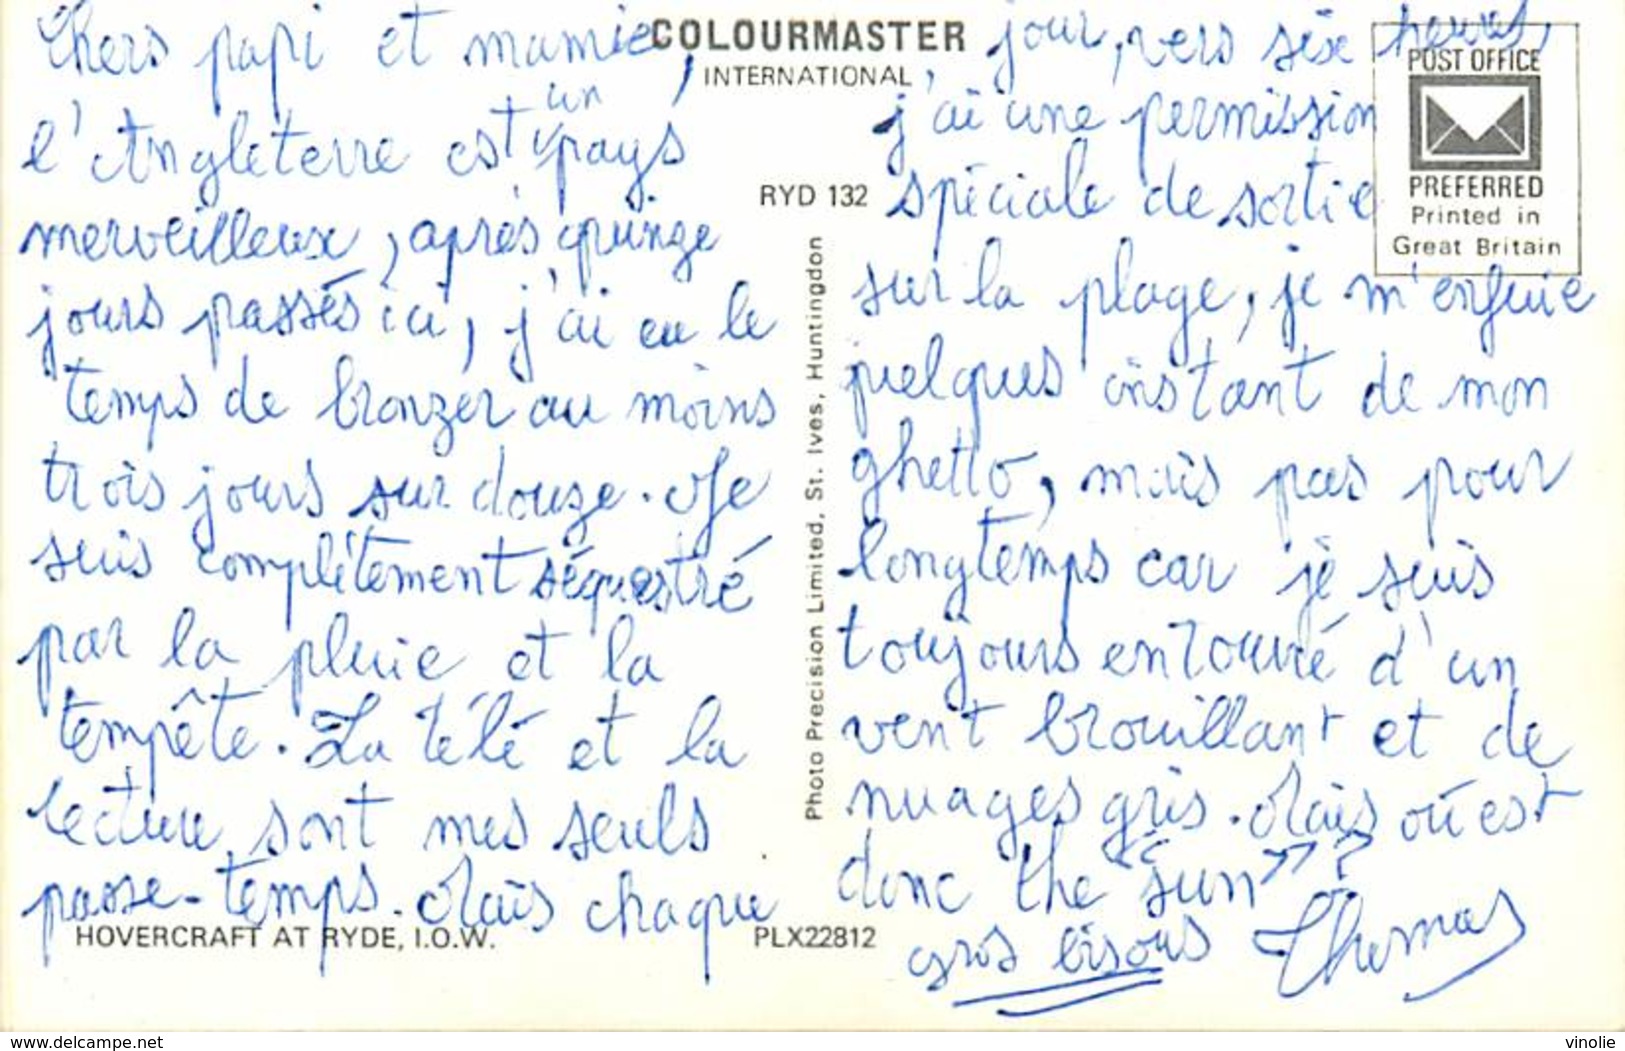 Chers papi et mamie,
l'Angleterre est un pays
merveilleux, après quinze
jours passés ici, j'ai eu le
temps de bronzer au moins
trois jours sur douze. Je
suis complètement séquestré
par la pluie et la
tempête. La télé et la
lecture sont mes seuls
passe-temps. Mais chaque
jour, vers six heures,
j'ai une permission
spéciale de sortie
sur la plage, je m'enfuie
quelques instant de mon
ghetto, mais pas pour
longtemps car je suis
toujours entouré d'un
vent brouillant et de
nuages gris. Mais où est
donc the "sun"?
gros bisous Thomas
COLOURMASTER
INTERNATIONAL
RYD 132
POST OFFICE
PREFERRED
Printed in
Great Britain
Photo Precision Limited, St. Ives, Huntingdon
HOVERCRAFT AT RYDE, I.O.W.
PLX22812
www.delcampe.net
vinolie